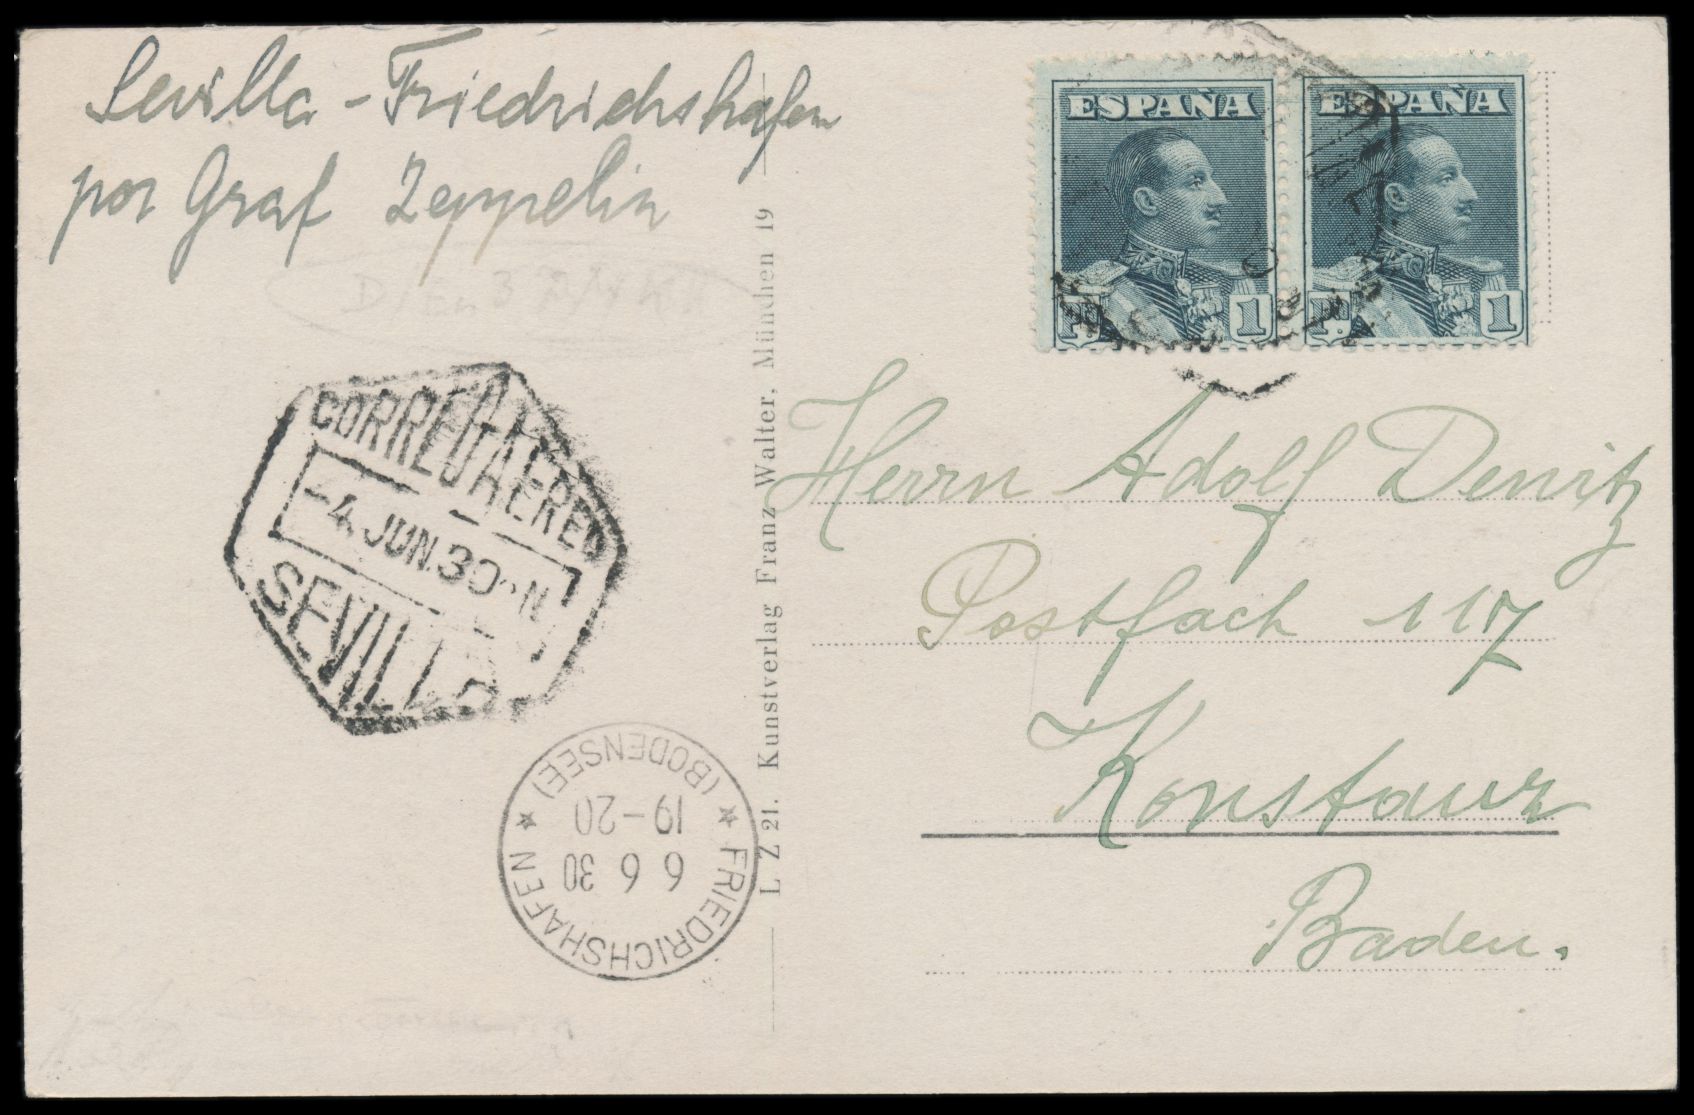 Sevilla - Friedrichshafen
por Graf Zeppelin
ESPAÑA
PTA. 1
ESPAÑA
PTA. 1
CORREO AEREO
-4 JUN.30 N
SEVILLA
FRIEDRICHSHAFEN
6 6 30
19-20
★ (BODENSEE) ★
L Z 21. Kunstverlag Franz Walter, München 19
Herrn Adolf Denitz
Postfach 117
Konstanz
Baden.